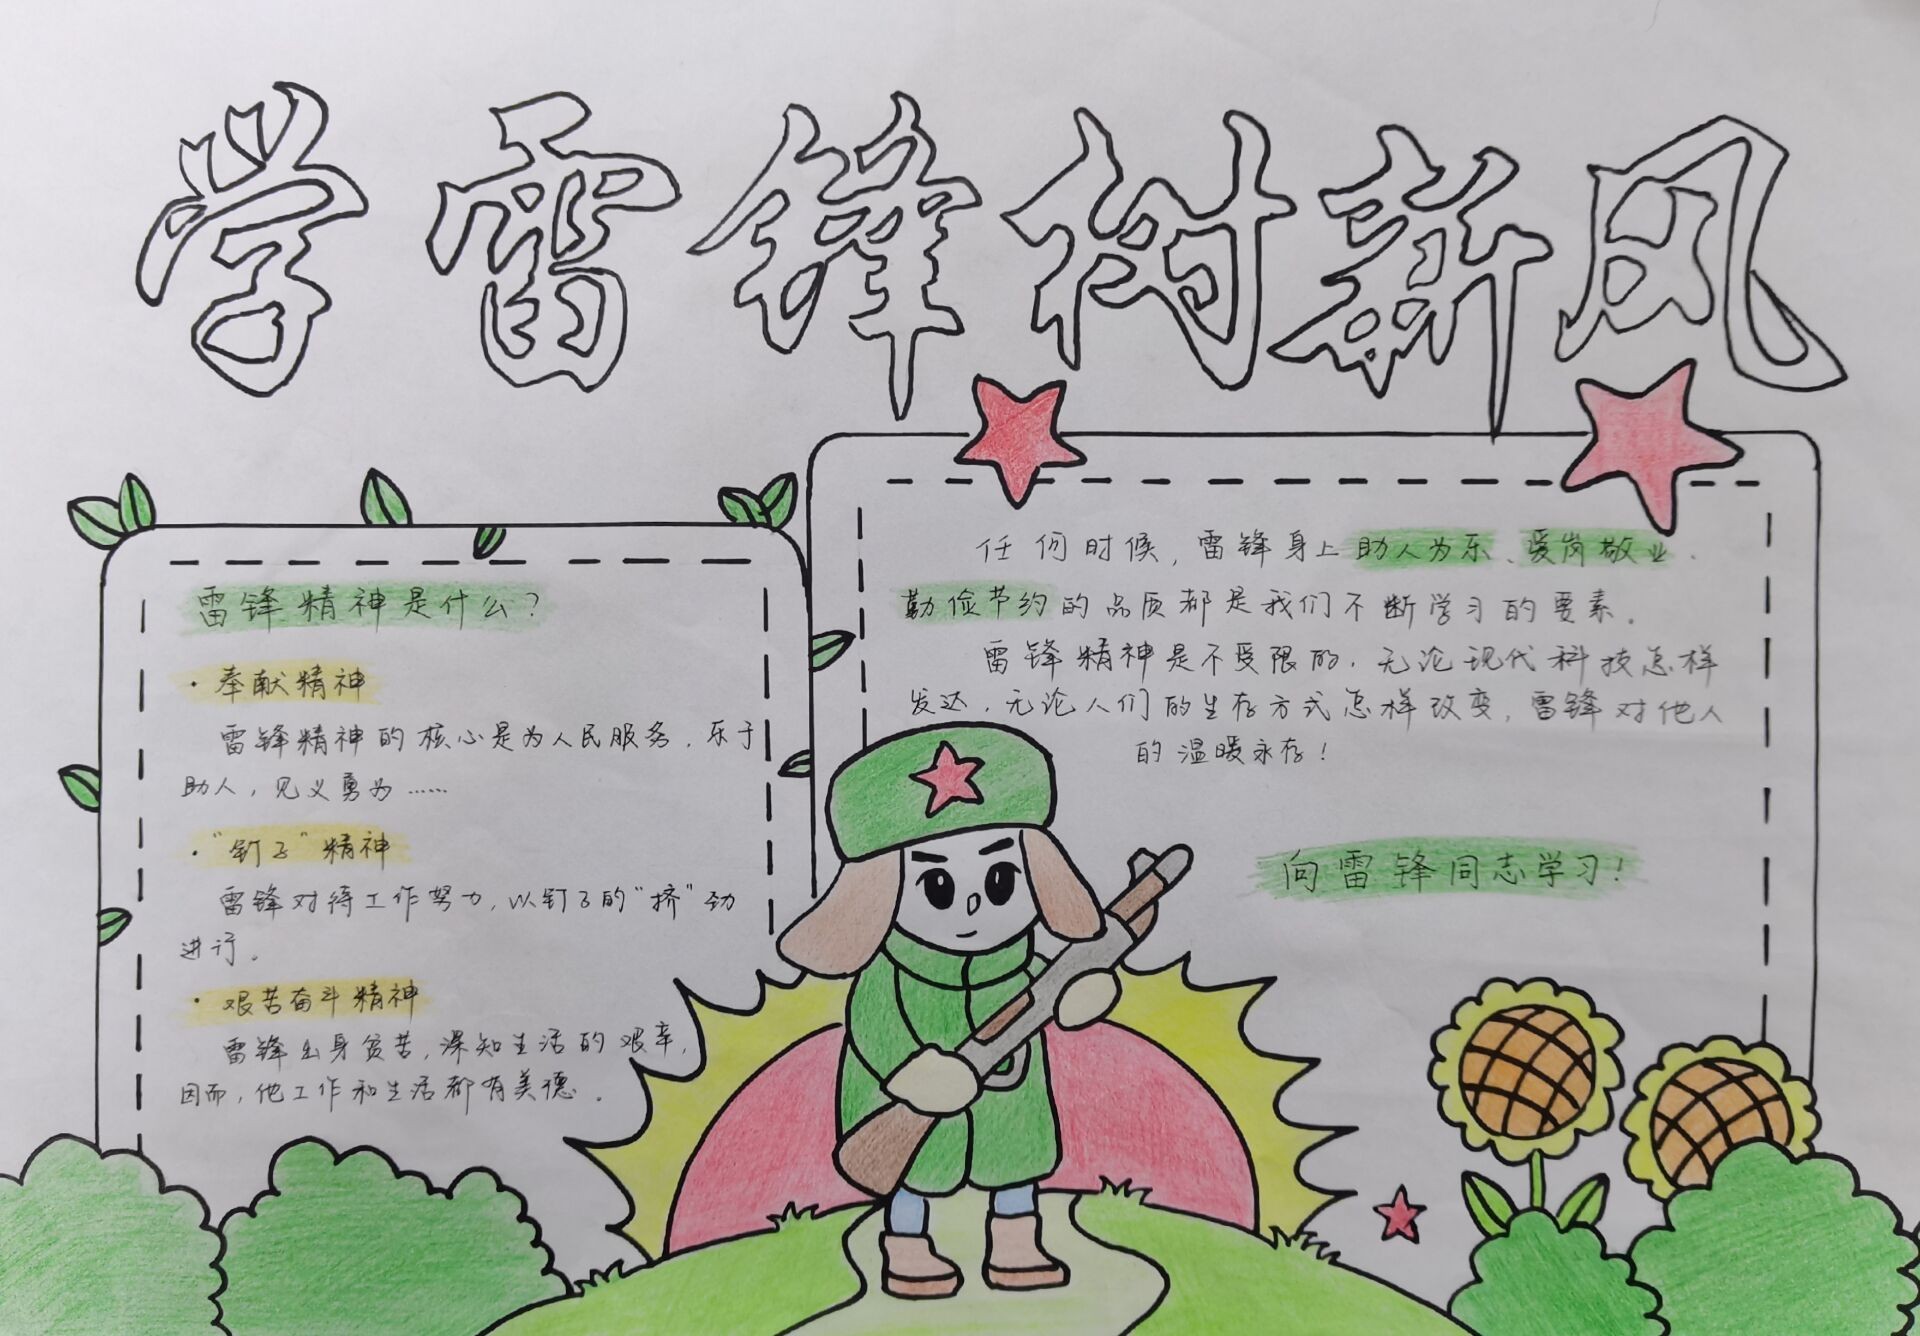 学雷锋树新风
雷锋精神是什么？
·奉献精神
雷锋精神的核心是为人民服务，乐于
助人，见义勇为……
·“钉子”精神
雷锋对待工作努力，以钉子的“挤”劲
进行。
·艰苦奋斗精神
雷锋出身贫苦，深知生活的艰辛，
因而，他工作和生活都有美德。
任何时候，雷锋身上助人为乐、爱岗敬业、
勤俭节约的品质都是我们不断学习的要素。
雷锋精神是不受限的，无论现代科技怎样
发达，无论人们的生存方式怎样改变，雷锋对他人
的温暖永存！
向雷锋同志学习！